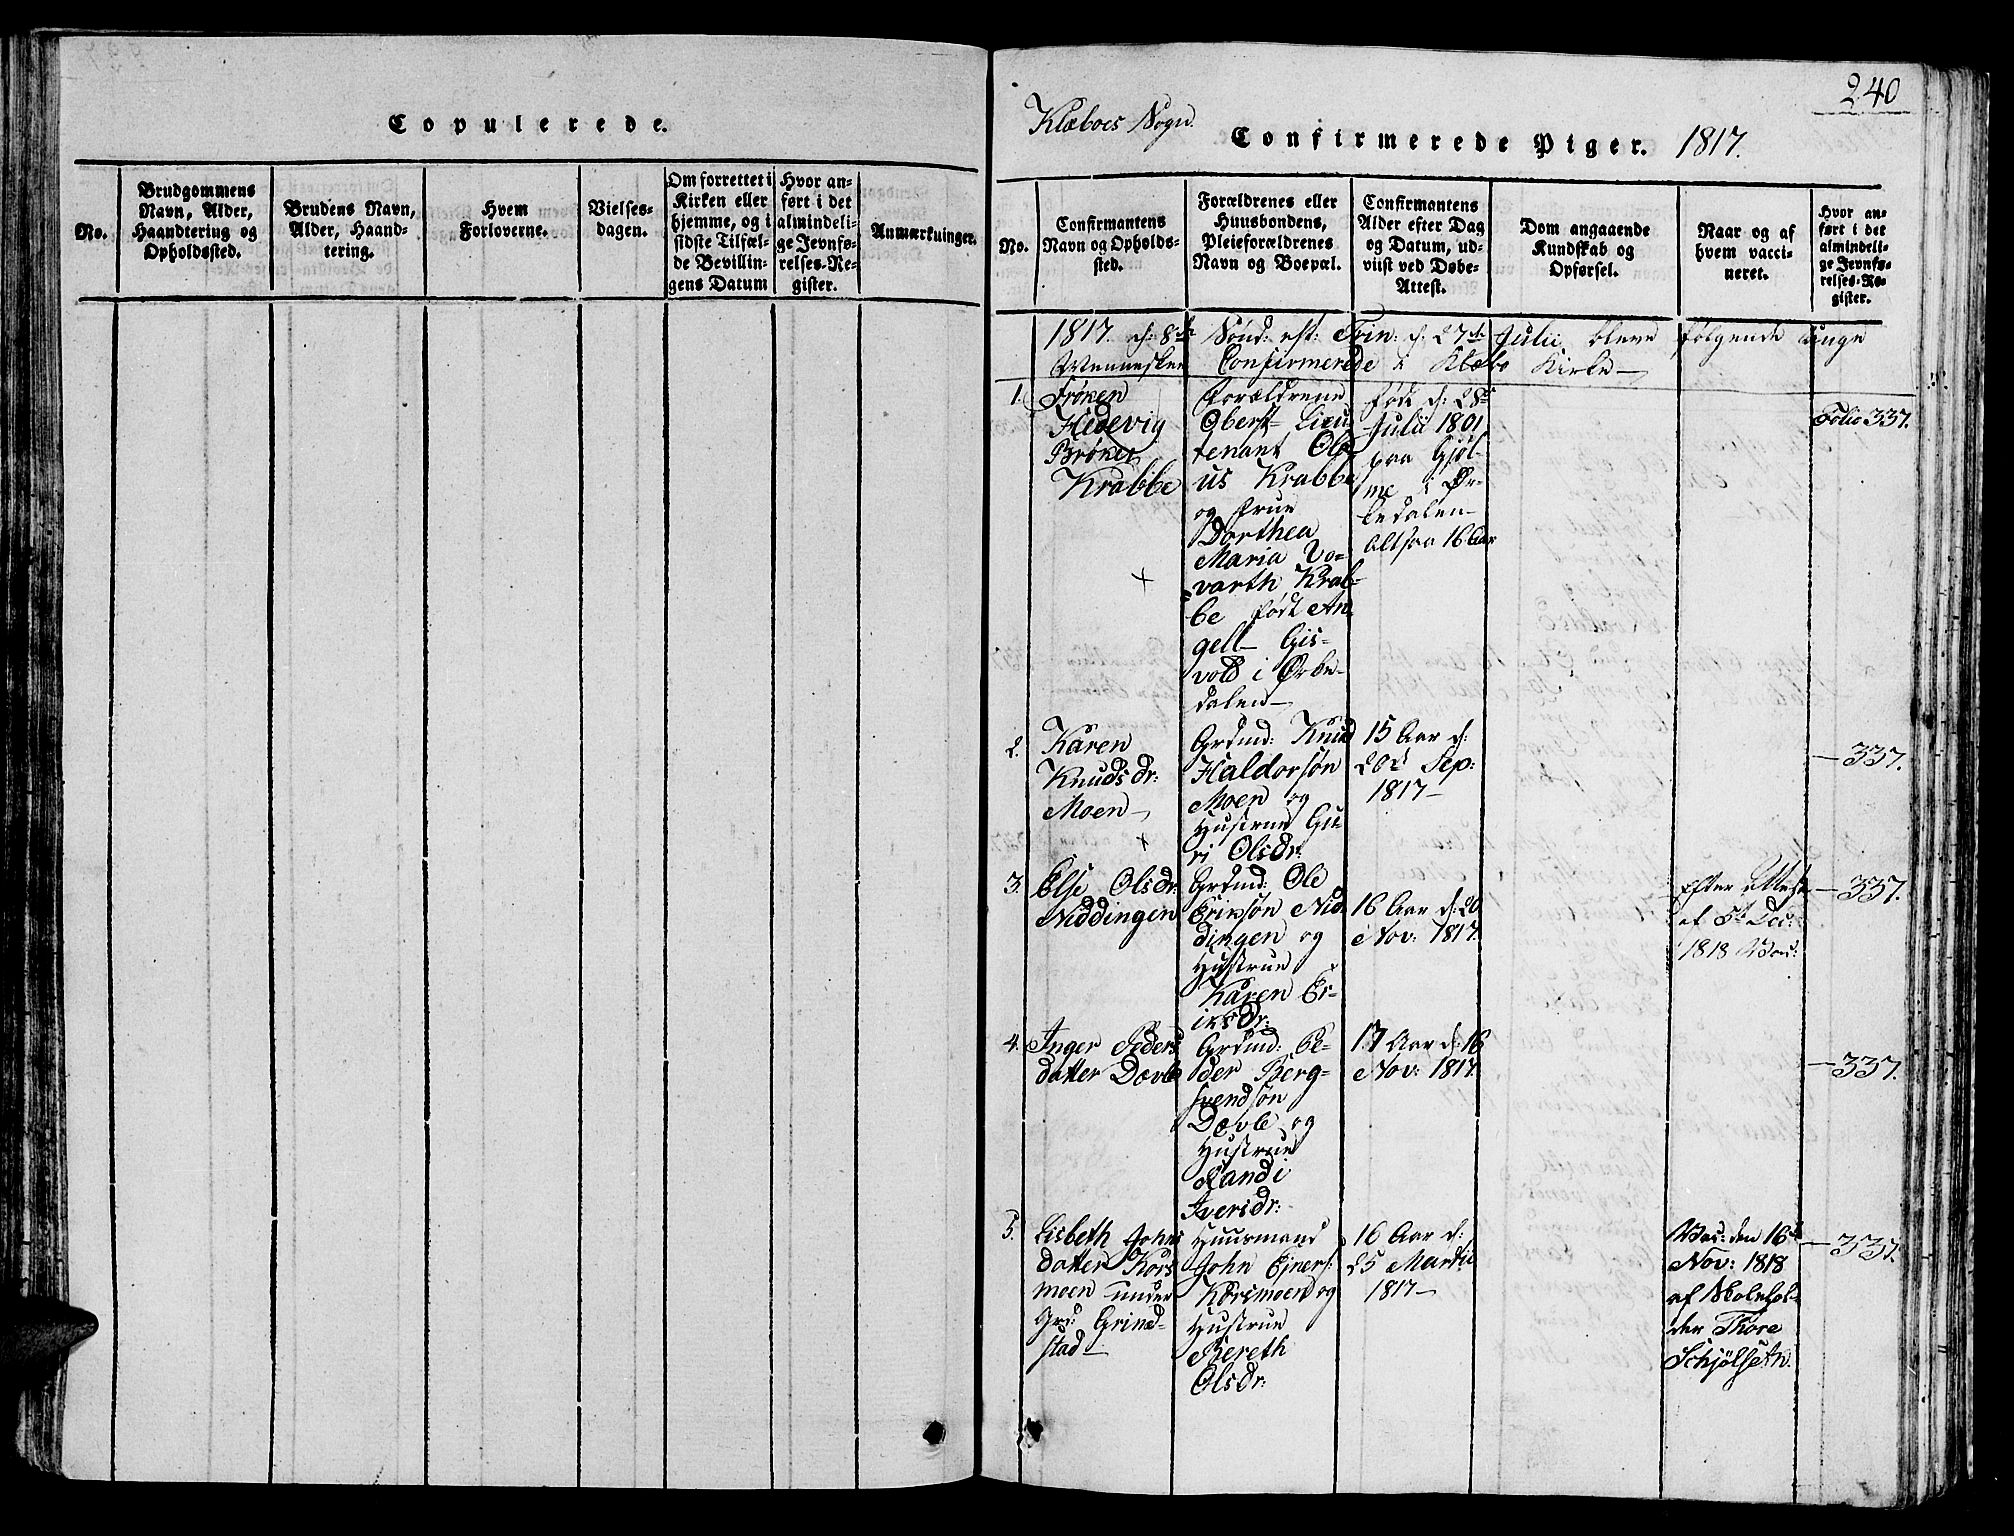 Copulerede.
No.
Brudgommens
Navn, Alder,
Haandtering og
Opholdssted.
Brudens Navn,
Alder, Haand-
tering.
Hvem
Forloverne.
Vielses-
dagen.
Om forrettet i
Kirken eller
hjemme, og i
sidste Tilfæl-
de Bevillin-
gens Datum
Hvor an-
ført i det
almindeli-
ge Jevnfø-
relses-Re-
gister.
Anmærkninger.
240
Klæboes Sogn.
Confirmerede Piger. 1817.
No.
Confirmantens
Navn og Opholds-
sted.
Forældrenes eller
Huusbondens,
Pleieforældrenes
Navn og Boepæl.
Confirmantens
Alder efter Dag
og Datum, ud-
viist ved Døbe-
Attest.
Dom angaaende
Kundskab og
Opførsel.
Naar og af
hvem vacci-
neret.
Hvor an-
ført i det
almindeli-
ge Jevnfø-
relses-Re-
gister.
1817. d: 8de Sönd: eft: Trin: d: 27de Julii bleve følgende unge
Mennesker Confirmerede i Klæbo Kirke—
1.
Frøken
Hedevig
Brøner
Krabbe
Forældrene
Oberst-Lieu
tenant Ole
us Krabbe
og Frue
Dorthea
Maria
varth Krab-
be født An
gell— Gis-
vold i Ørke-
dalen—
født d: 28de
Julii 1801
paa Gjöl-
me i Ør-
kedalen—
altsaa 16 Aar
Folio 337.
2.
Karen
Knudsdr:
Moen—
Grdmd: Knud
Haldorsön
Moen og
Hustrue Gu-
ri Olsdr:
15 Aar d:
20de Sep:
1817—
— 337.
3.
Else Olsdr:
Niddingen
Grdmd: Ole
Eriksön Nid-
dingen og
Hustrue
Karen Er-
iksdr:
16 Aar d: 20
Nov: 1817.
Efter Attest
af 5te Dec:
1818 Vac:
— 337.
4.
Inger Peders
datter Dævle
Grdmd: Pe-
der Berg-
svendsön
Dævle og
Hustrue
Randi
Iversdr:
17 Aar d: 16
Nov: 1817.
— 337.
5.
Lisbeth Johns
datter Kors
moen under
Grd: Grind-
stad—
Huusmand
John Ejners:
Korsmoen og
Hustrue
Mereth
Olsdr:
16 Aar d:
25 Martii
1817—
Vac: den 16de
Nov: 1818
af Skolehol-
der Thore
Schjölseth.
— 337.